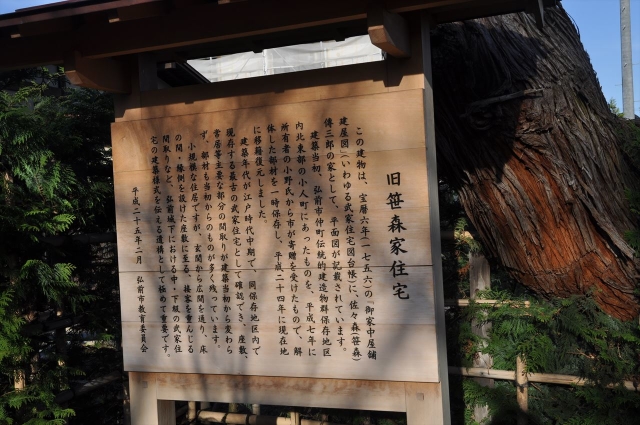 旧笹森家住宅
この建物は、宝暦六年(一七五六)の「御家中屋舗
建屋図」(いわゆる武家住宅図台帳)に、佐々森(笹森)
傳三郎の家として、平面図が記載されています。
建築当初、弘前市仲町伝統的建造物群保存地区
内北東部の小人町にあったものを、平成七年に
所有者の小野氏から市が寄贈を受けたもので、解
体した部材を一時保存し、平成二十四年に現在地
に移築復元しました。
建築年代が江戸時代中期で、同保存地区内で
現存する最古の武家住宅として確認でき、座敷、
常居等主要な部分の間取りが建築当初から変わら
ず、部材も当初からのものが多く残っています。
小規模な住居ですが、玄関から広間を通り、床
の間・縁側を設けた座敷に至る、接客を重んじる
間取りなど、弘前城下における中・下級の武家住
宅の建築様式を伝える遺構として極めて重要です。
平成二十五年二月 弘前市教育委員会